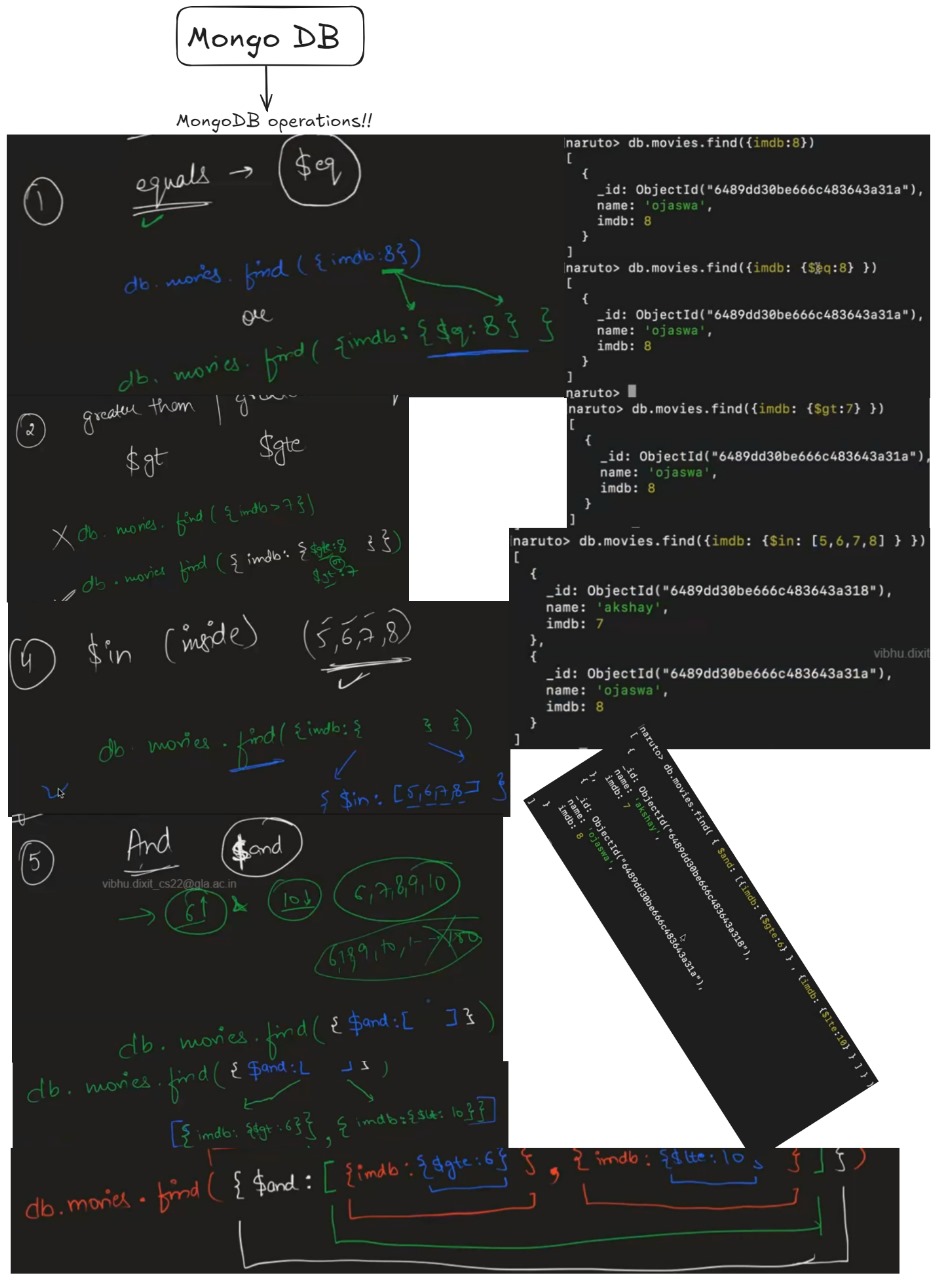 Mongo DB
MongoDB operations!!
1
equals → $eq
db.movies.find({imdb:8})
or
db.movies.find( {imdb: {$eq: 8} }
naruto> db.movies.find({imdb:8})
[
{
_id: ObjectId("6489dd30be666c483643a31a"),
name: 'ojaswa',
imdb: 8
}
]
naruto> db.movies.find({imdb: {$eq:8} })
[
{
_id: ObjectId("6489dd30be666c483643a31a"),
name: 'ojaswa',
imdb: 8
}
]
naruto>
2
greater them |
$gt $gte
X db.movies.find({imdb>7})
db.movies find({imdb: {$gte:8 }})
(or)
$gt:7
naruto> db.movies.find({imdb: {$gt:7} })
[
{
_id: ObjectId("6489dd30be666c483643a31a"),
name: 'ojaswa',
imdb: 8
}
]
naruto> db.movies.find({imdb: {$in: [5,6,7,8] } })
[
{
_id: ObjectId("6489dd30be666c483643a318"),
name: 'akshay',
imdb: 7
},
{
_id: ObjectId("6489dd30be666c483643a31a"),
name: 'ojaswa',
imdb: 8
}
]
vibhu.dixit
4
$in (inside) (5,6,7,8)
db.movies.find({imdb:{ } })
{ $in: [5,6,7,8] }
5
And $and
vibhu.dixit_cs22@gla.ac.in
→ 6↑ & 10↓ 6,7,8,9,10
db.movies.find({ $and:[ ]})
db.movies.find({ $and:[ ] })
[{imdb: {$gt:6}}, {imdb:{$lt: 10}}]
naruto> db.movies.find( { $and: [{imdb: {$gte:6} } , {imdb: {$lte:10} } ] } )
[
{
_id: ObjectId("6489dd30be666c483643a318"),
name: 'akshay',
imdb: 7
},
{
_id: ObjectId("6489dd30be666c483643a31a"),
name: 'ojaswa',
imdb: 8
}
]
db.movies.find( { $and: [ {imdb: {$gte:6} } , { imdb: {$lte:10 } } ] } )